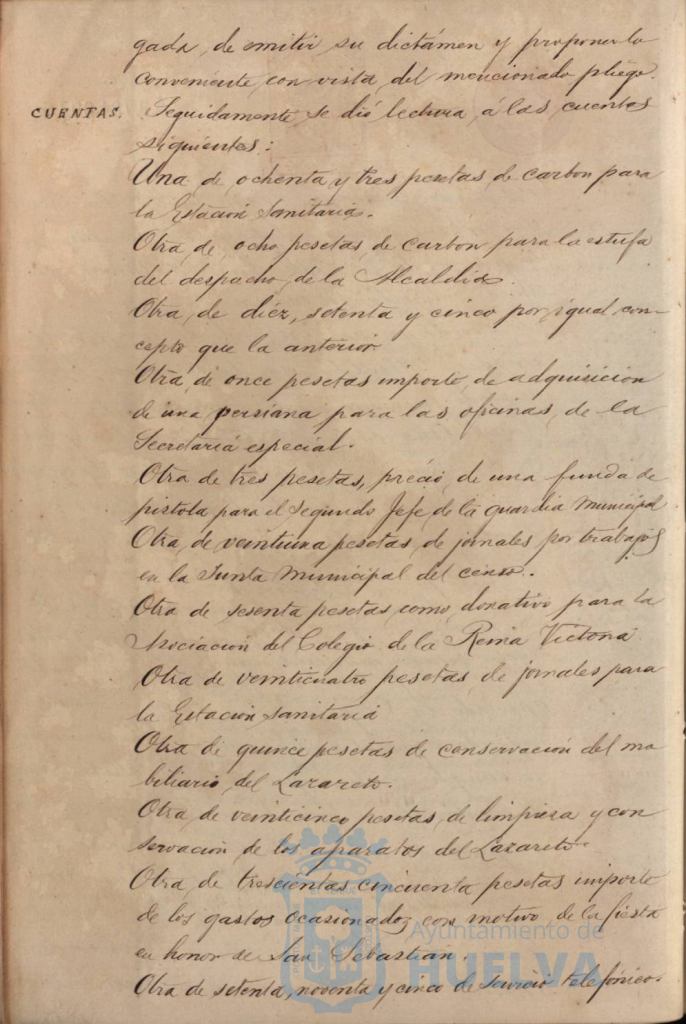 gada, de emitir su dictámen y proponer lo
conveniente con vista del mencionado pliego.
CUENTAS. Seguidamente se dió lectura á las cuentas
siguientes:
Una de ochenta y tres pesetas de carbon para
la Estación Sanitaria.
Otra de ocho pesetas de carbon para la estufa
del despacho de la Alcaldia.
Otra de diéz, setenta y cinco por igual con-
cepto que la anterior
Otra de once pesetas importe de adquisición
de una persiana para las oficinas de la
Secretaría especial.
Otra de tres pesetas, precio de una funda de
pistola para el segundo Jefe de la guardia Municipal
Otra de veintiuna pesetas de jornales por trabajos
en la Junta Municipal del censo.
Otra de sesenta pesetas como donativo para la
Asociación del Colegio de la Reina Victoria
Otra de veinticuatro pesetas de jornales para
la Estación sanitaria
Otra de quince pesetas de conservación del mo
biliario del Lazareto.
Otra de veinticinco pesetas de limpieza y con
servación de los aparatos del Lazareto.
Otra de trescientas cincuenta pesetas importe
de los gastos ocasionados con motivo de la fiesta
en honor de San Sebastian.
Otra de setenta, noventa y cinco de servicio telefónico.
Ayuntamiento de
HUELVA